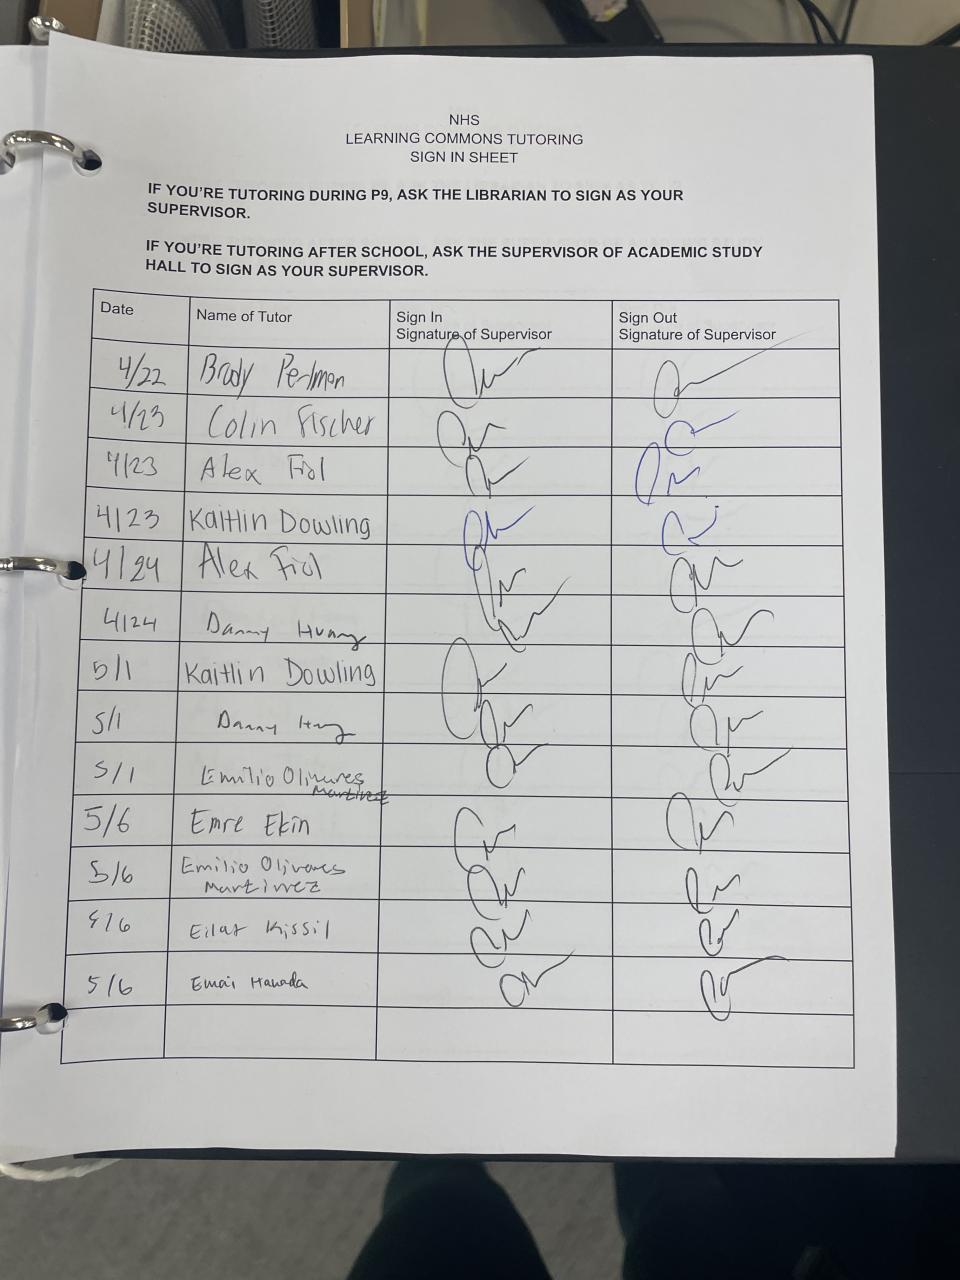 NHS
LEARNING COMMONS TUTORING
SIGN IN SHEET
IF YOU'RE TUTORING DURING P9, ASK THE LIBRARIAN TO SIGN AS YOUR
SUPERVISOR.
IF YOU'RE TUTORING AFTER SCHOOL, ASK THE SUPERVISOR OF ACADEMIC STUDY
HALL TO SIGN AS YOUR SUPERVISOR.
Date Name of Tutor Sign In Signature of Supervisor Sign Out Signature of Supervisor
4/22 Brody Perlman
4/23 Colin Fischer
4/23 Alex Fiol
4/23 Kaitlin Dowling
4/24 Alex Fiol
4/24 Danny Huang
5/1 Kaitlin Dowling
5/1 Danny
5/1 Emilio Olivares
Martinez
5/6 Emre Ekin
5/6 Emilio Olivares
Martinez
5/6 Eilat Kissil
5/6 Hamada